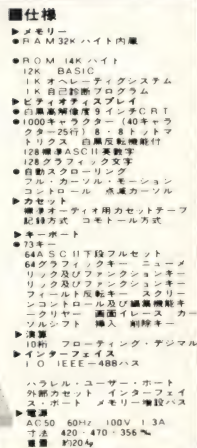 ■仕様
▶メモリー
●RAM32Kバイト内蔵
●ROM 14Kバイト
12K BASIC
1Kオペレーティグシステム
1K自己診断プログラム
▶ビティオティスプレイ
●白黒高解像度9インチCRT
●1000キャラクター(40キャラ
クター25行) 8・8トットマ
トリクス 白黒反転機能付
128標準ASCII英数字
128グラフィック文字
●自動スクローリング
フル・カーソル・モーション
コントロール 点滅カーソル
▶カセット
標準オーティオ用カセットテープ
記録方式 コモトール方式
▶キーボート
●73キー
64ASCII下段フルセット
64グラフィックキー ニューメ
リック及びファンクションキー
リック及びファンクションキー
フィールト反転キー スクリー
ンコントロール及び編集機能キ
ークリヤー 画面イレース カー
ソルシフト 挿入 削除キー
▶演算
10桁 フローティング・デシマル
▶インターフェイス
IO IEEE-488バス
ハラレル・ユーザー・ホート
外部カセット インターフェイ
ス・ポート メモリー増設バス
▶電源
AC50 60Hz 100V 1.3A
寸法 420・470・356㎜
重量 約20㎏